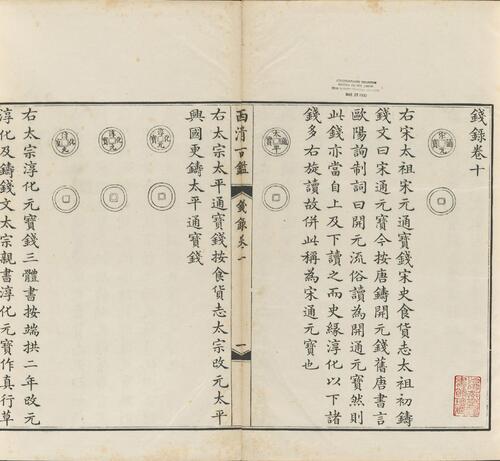 錢錄卷十
宋通元寶
右宋太祖宋元通寶錢宋史食貨志太祖初鑄
錢文曰宋通元寶今按唐鑄開元錢舊唐書言
歐陽詢制詞曰開元流俗讀為開通元寶然則
此錢亦當自上及下讀之而史緣淳化以下諸
錢多右旋讀故併此稱為宋通元寶也
太平通寶
西清古鑑
錢錄卷一
一
右太宗太平通寶錢按食貨志太宗改元太平
興國更鑄太平通寶錢
淳化元寶
淳化元寶
淳化元寶
右太宗淳化元寶錢三體書按端拱二年改元
淳化及鑄錢文太宗親書淳化元寶作真行草